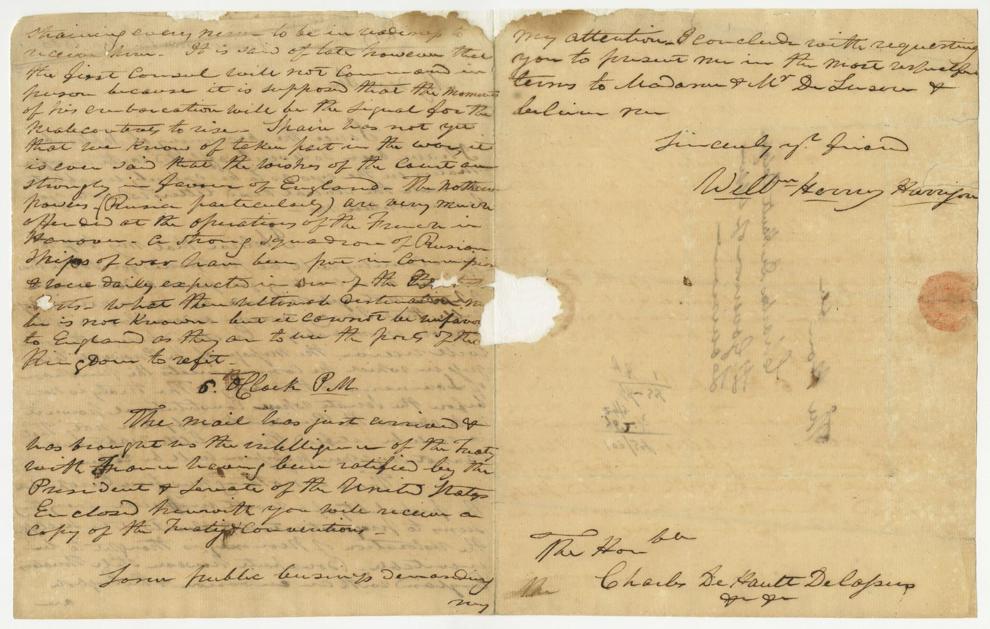 straining every nerve to be in readiness to
receive him. It is said of late however that
the first Consul will not Command in
person because it is supposed that the moment
of his embarcation will be the signal for the
Malecontents to rise. Spain has not yet
that we know of taken part in the war, it
is even said that the wishes of the Court are
strongly in favour of England. The nothern
powers (Russia particularly) are very much
offended at the operations of the French in
Hanover. A strong squadron of Russian
Ships of war have been put in Commission
& were daily expected in one of the
ports. What their ultimate destination may
be is not Known - but it cannot be unfavo
to England as they are to use the ports of the
Kingdom to refit
5. OClock P.M
The mail has just arrived &
has brought us the intelligence of the Treaty
with France having been ratified by the
President & Senate of the United States
Enclosed herewith you will receive a
copy of the Treaty & Conventions -
Some public business demanding
my
my attention I conclude with requesting
you to present me in the most respectful
terms to Madame & Mr De Lusere &
believe me
Sincerely yr. friend
Willm Henry Harrison
The Honble
Charles De Hault Delassus
&c &c